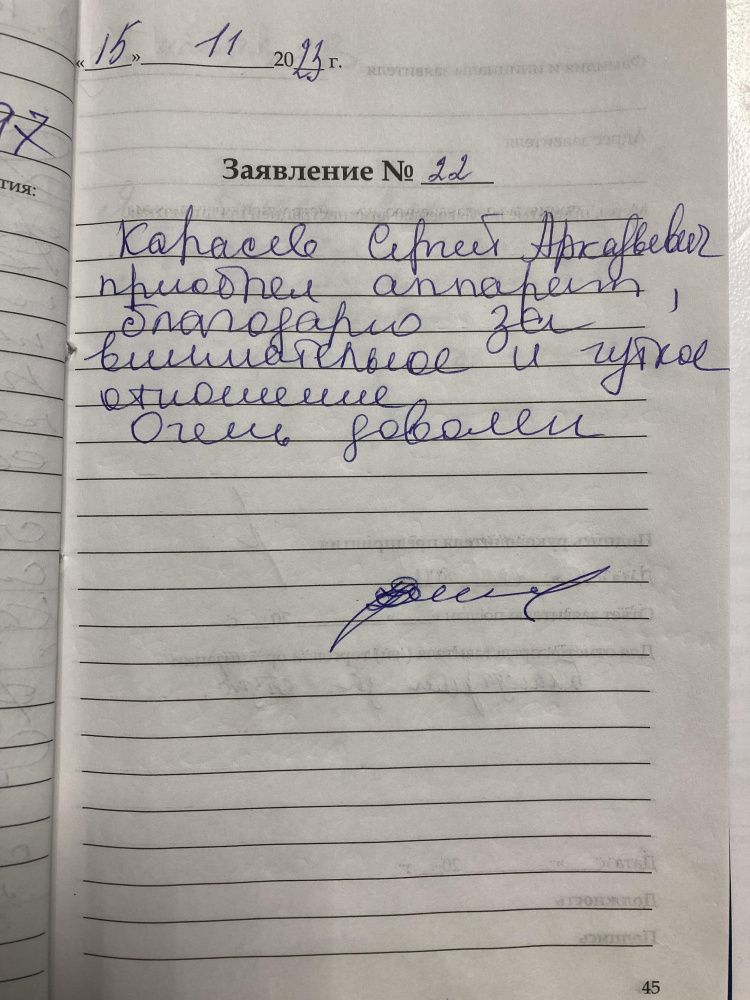 «15» 11 2023 г.
97
тия:
Заявление № 22
Карасев Сергей Аркадьевич
приобрел аппарат,
благодарю за
внимательное и чуткое
отношение
Очень доволен
45